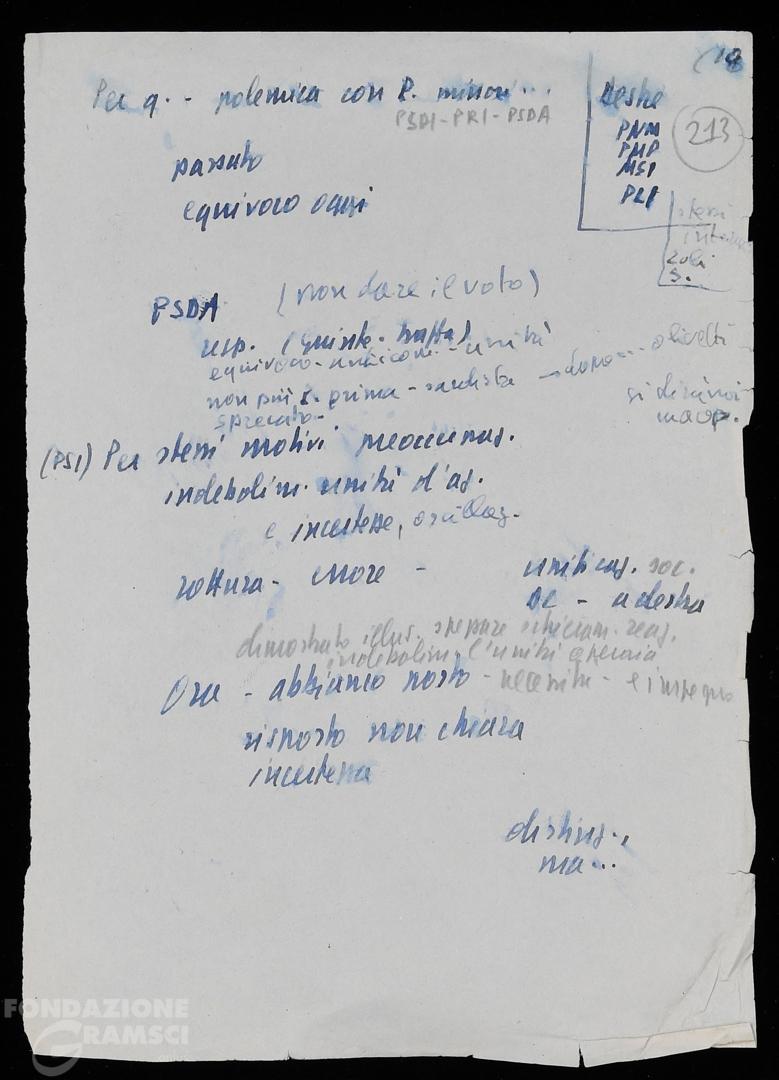 (19
Per q. - polemica con P. minori...
PSDI - PRI - PSDA
Destre
PNM
PMP
MSI
PLI
213
passato
equivoco oggi
stessi
Zoli
S.
PSDA (non dare il voto)
risp. (quinte. truffa)
equivoco - - unità
non più prima - sardista - dopo... olivetti
sprecato -
si dirà noi
(PSI) Per stessi motivi preoccupaz.
indebolim. unità d'az.
e incertezze, oscillaz.
rottura - More -
unificaz. soc.
DC - a destra
dimostrato illus. schieram. reaz.
indebolim. l'unità operaia
Ora - abbiamo posto - necessità - e impegno
risposto non chiara
incertezza
distinz..
ma...
FONDAZIONE
GRAMSCI